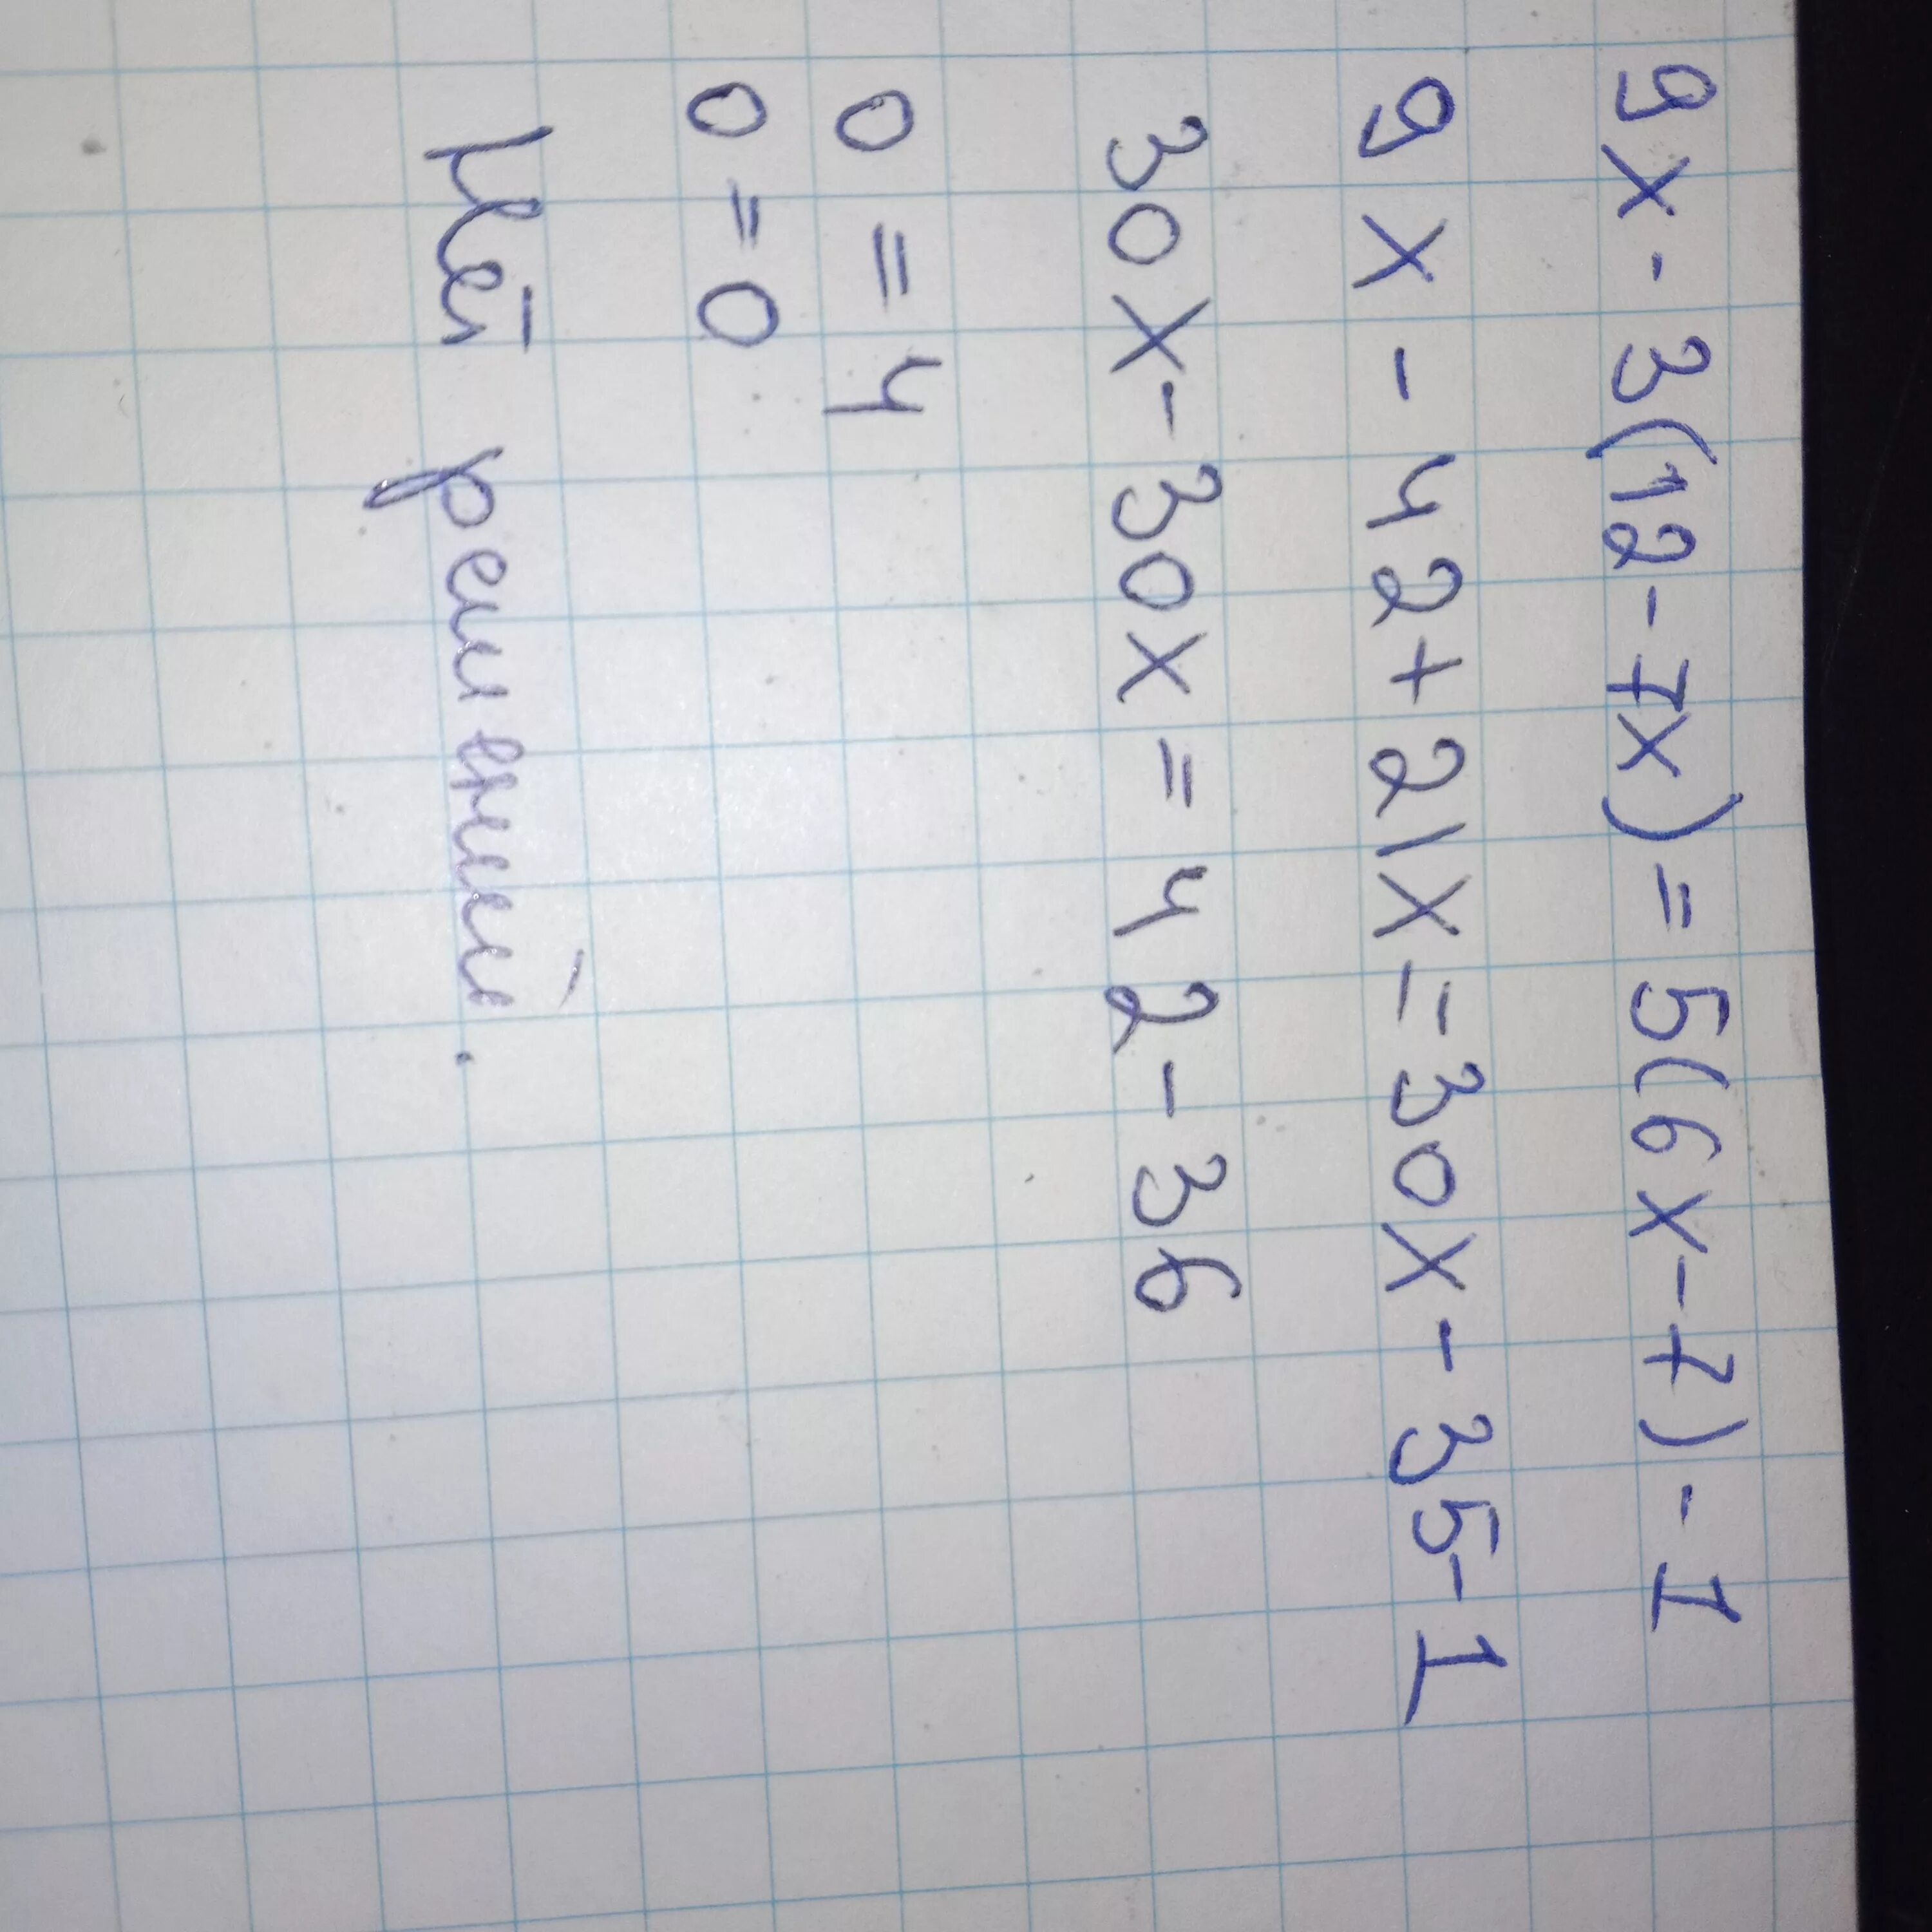 9x - 3(12 - 7x) = 5(6x - 7) - 1
9x - 42 + 21x = 30x - 35 - 1
30x - 30x = 42 - 36
0 = 4
0 = 0
Нет решений.